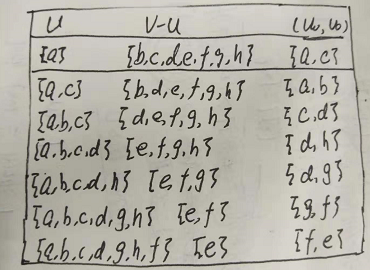 U V-U (u₀, v₀)
{a} {b,c,d,e,f,g,h} {a,c}
{a,c} {b,d,e,f,g,h} {a,b}
{a,b,c} {d,e,f,g,h} {c,d}
{a,b,c,d} {e,f,g,h} {d,h}
{a,b,c,d,h} {e,f,g} {d,g}
{a,b,c,d,g,h} {e,f} {g,f}
{a,b,c,d,g,h,f} {e} {f,e}